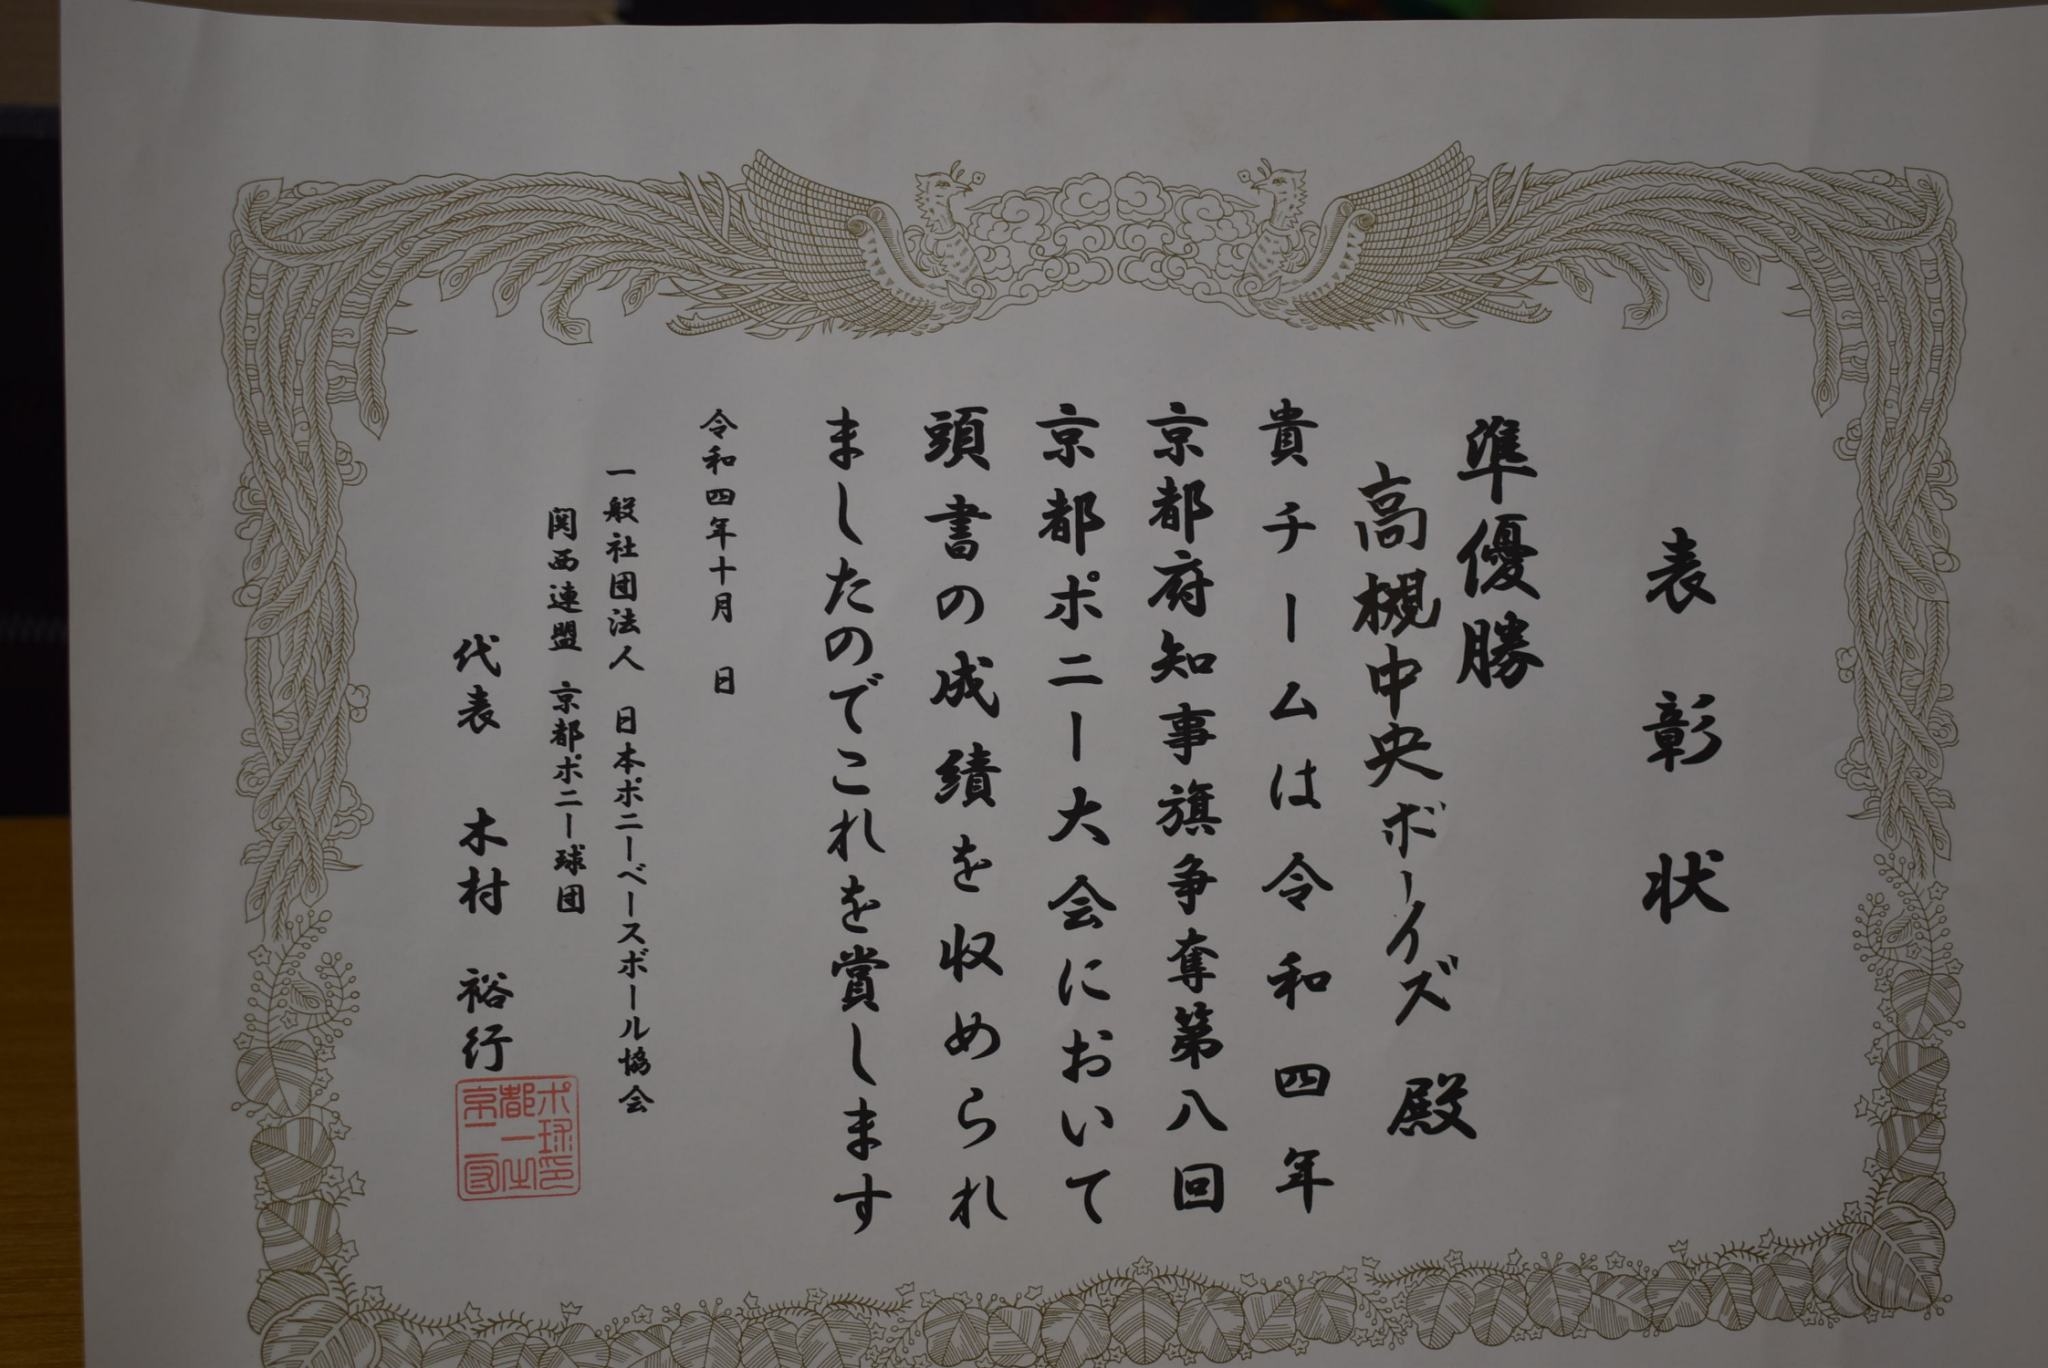 表彰状
準優勝
高槻中央ボーイズ 殿
貴チームは令和四年
京都府知事旗争奪第八回
京都ポニー大会において
頭書の成績を収められ
ましたのでこれを賞します
令和四年十月 日
一般社団法人 日本ポニーベースボール協会
関西連盟 京都ポニー球団
代表 木村 裕行